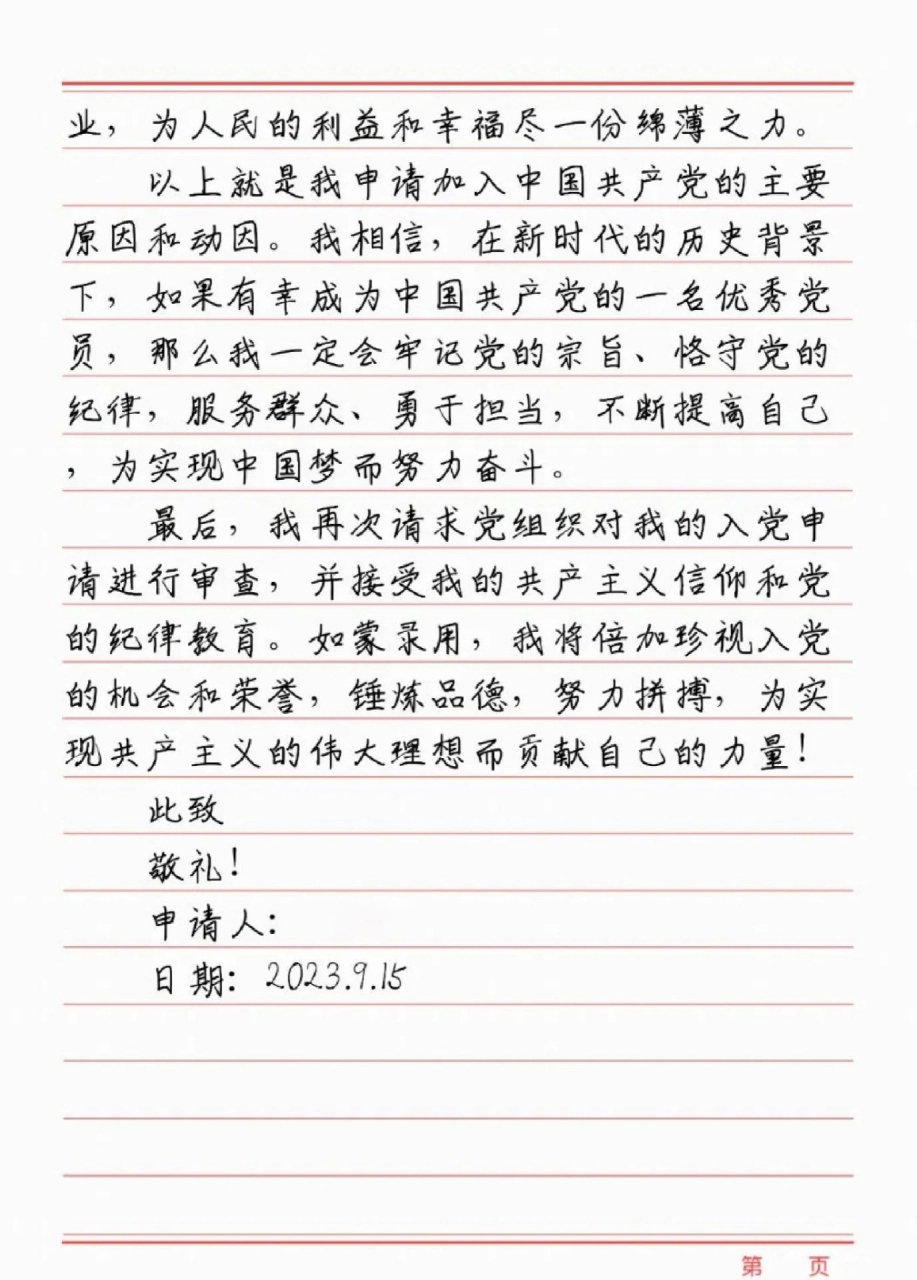 业，为人民的利益和幸福尽一份绵薄之力。
以上就是我申请加入中国共产党的主要
原因和动因。我相信，在新时代的历史背景
下，如果有幸成为中国共产党的一名优秀党
员，那么我一定会牢记党的宗旨、恪守党的
纪律，服务群众、勇于担当，不断提高自己
，为实现中国梦而努力奋斗。
最后，我再次请求党组织对我的入党申
请进行审查，并接受我的共产主义信仰和党
的纪律教育。如蒙录用，我将倍加珍视入党
的机会和荣誉，锤炼品德，努力拼搏，为实
现共产主义的伟大理想而贡献自己的力量！
此致
敬礼！
申请人：
日期：2023.9.15
第 页